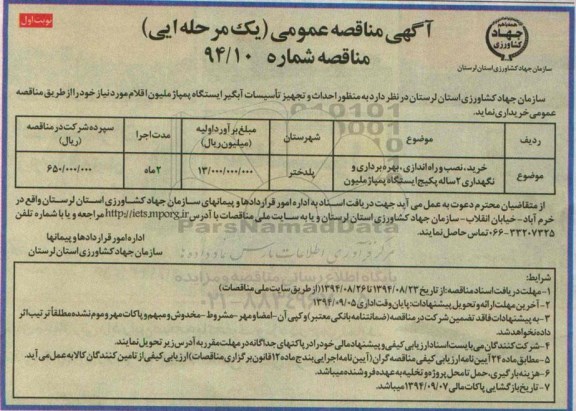 نوبت اول
جهاد کشاورزی
سازمان جهاد کشاورزی استان لرستان
آگهی مناقصه عمومی (یک مرحله ایی)
مناقصه شماره ۹۴/۱۰
سازمان جهاد کشاورزی استان لرستان در نظر دارد به منظور احداث و تجهیز تأسیسات آبگیر ایستگاه پمپاژ ملیون اقلام مورد نیاز خود را از طریق مناقصه
عمومی خریداری نماید.
ردیف موضوع شهرستان مبلغ برآورد اولیه (میلیون ریال) مدت اجرا سپرده شرکت در مناقصه (ریال)
موضوع خرید، نصب و راه اندازی، بهره برداری و نگهداری ۲ ساله پکیج ایستگاه پمپاژ ملیون پلدختر ۱۳/۰۰۰/۰۰۰/۰۰۰ ۲ماه ۶۵۰/۰۰۰/۰۰۰
از متقاضیان محترم دعوت به عمل می آید جهت دریافت اسناد به اداره امور قراردادها و پیمانهای سازمان جهاد کشاورزی استان لرستان واقع در
خرم آباد - خیابان انقلاب - سازمان جهاد کشاورزی استان لرستان و یا به سایت ملی مناقصات با آدرس http://iets.mporg.ir مراجعه و یا با شماره تلفن
۳۳۲۰۷۳۲۵-۰۶۶ تماس حاصل نمایند.
اداره امور قراردادها و پیمانها
سازمان جهاد کشاورزی استان لرستان
ParsNamadData
مرکز فرآوری اطلاعات پارس نماد داده ها
پایگاه اطلاع رسانی مناقصه و مزایده
شرایط:
۱- مهلت دریافت اسناد مناقصه: از تاریخ ۱۳۹۴/۰۸/۲۳ تا ۱۳۹۴/۰۸/۲۶ (از طریق سایت ملی مناقصات)
۲- آخرین مهلت ارائه و تحویل پیشنهادات: پایان وقت اداری ۱۳۹۴/۰۹/۰۵
۳- به پیشنهادات فاقد تضمین شرکت در مناقصه (ضمانتنامه بانکی معتبر) و کپی آن - امضاء و مهر - مشروط - مخدوش و مبهم و پاکات مهر و موم نشده مطلقاً ترتیب اثر
داده نخواهد شد.
۴- شرکت کنندگان می بایست اسناد ارزیابی کیفی و پیشنهاد مالی خود را در پاکتهای جداگانه در مهلت مقرر به آدرس زیر تحویل نمایند.
۵- مطابق ماده ۲۴ آیین نامه ارزیابی کیفی مناقصه گران (آیین نامه اجرایی بند ج ماده ۱۲ قانون برگزاری مناقصات) ارزیابی کیفی از تامین کنندگان کالا به عمل می آید.
۶- هزینه بارگیری، حمل تا محل پروژه و تخلیه به عهده فروشنده میباشد.
۷- تاریخ بازگشایی پاکات مالی ۱۳۹۴/۰۹/۰۷ میباشد.